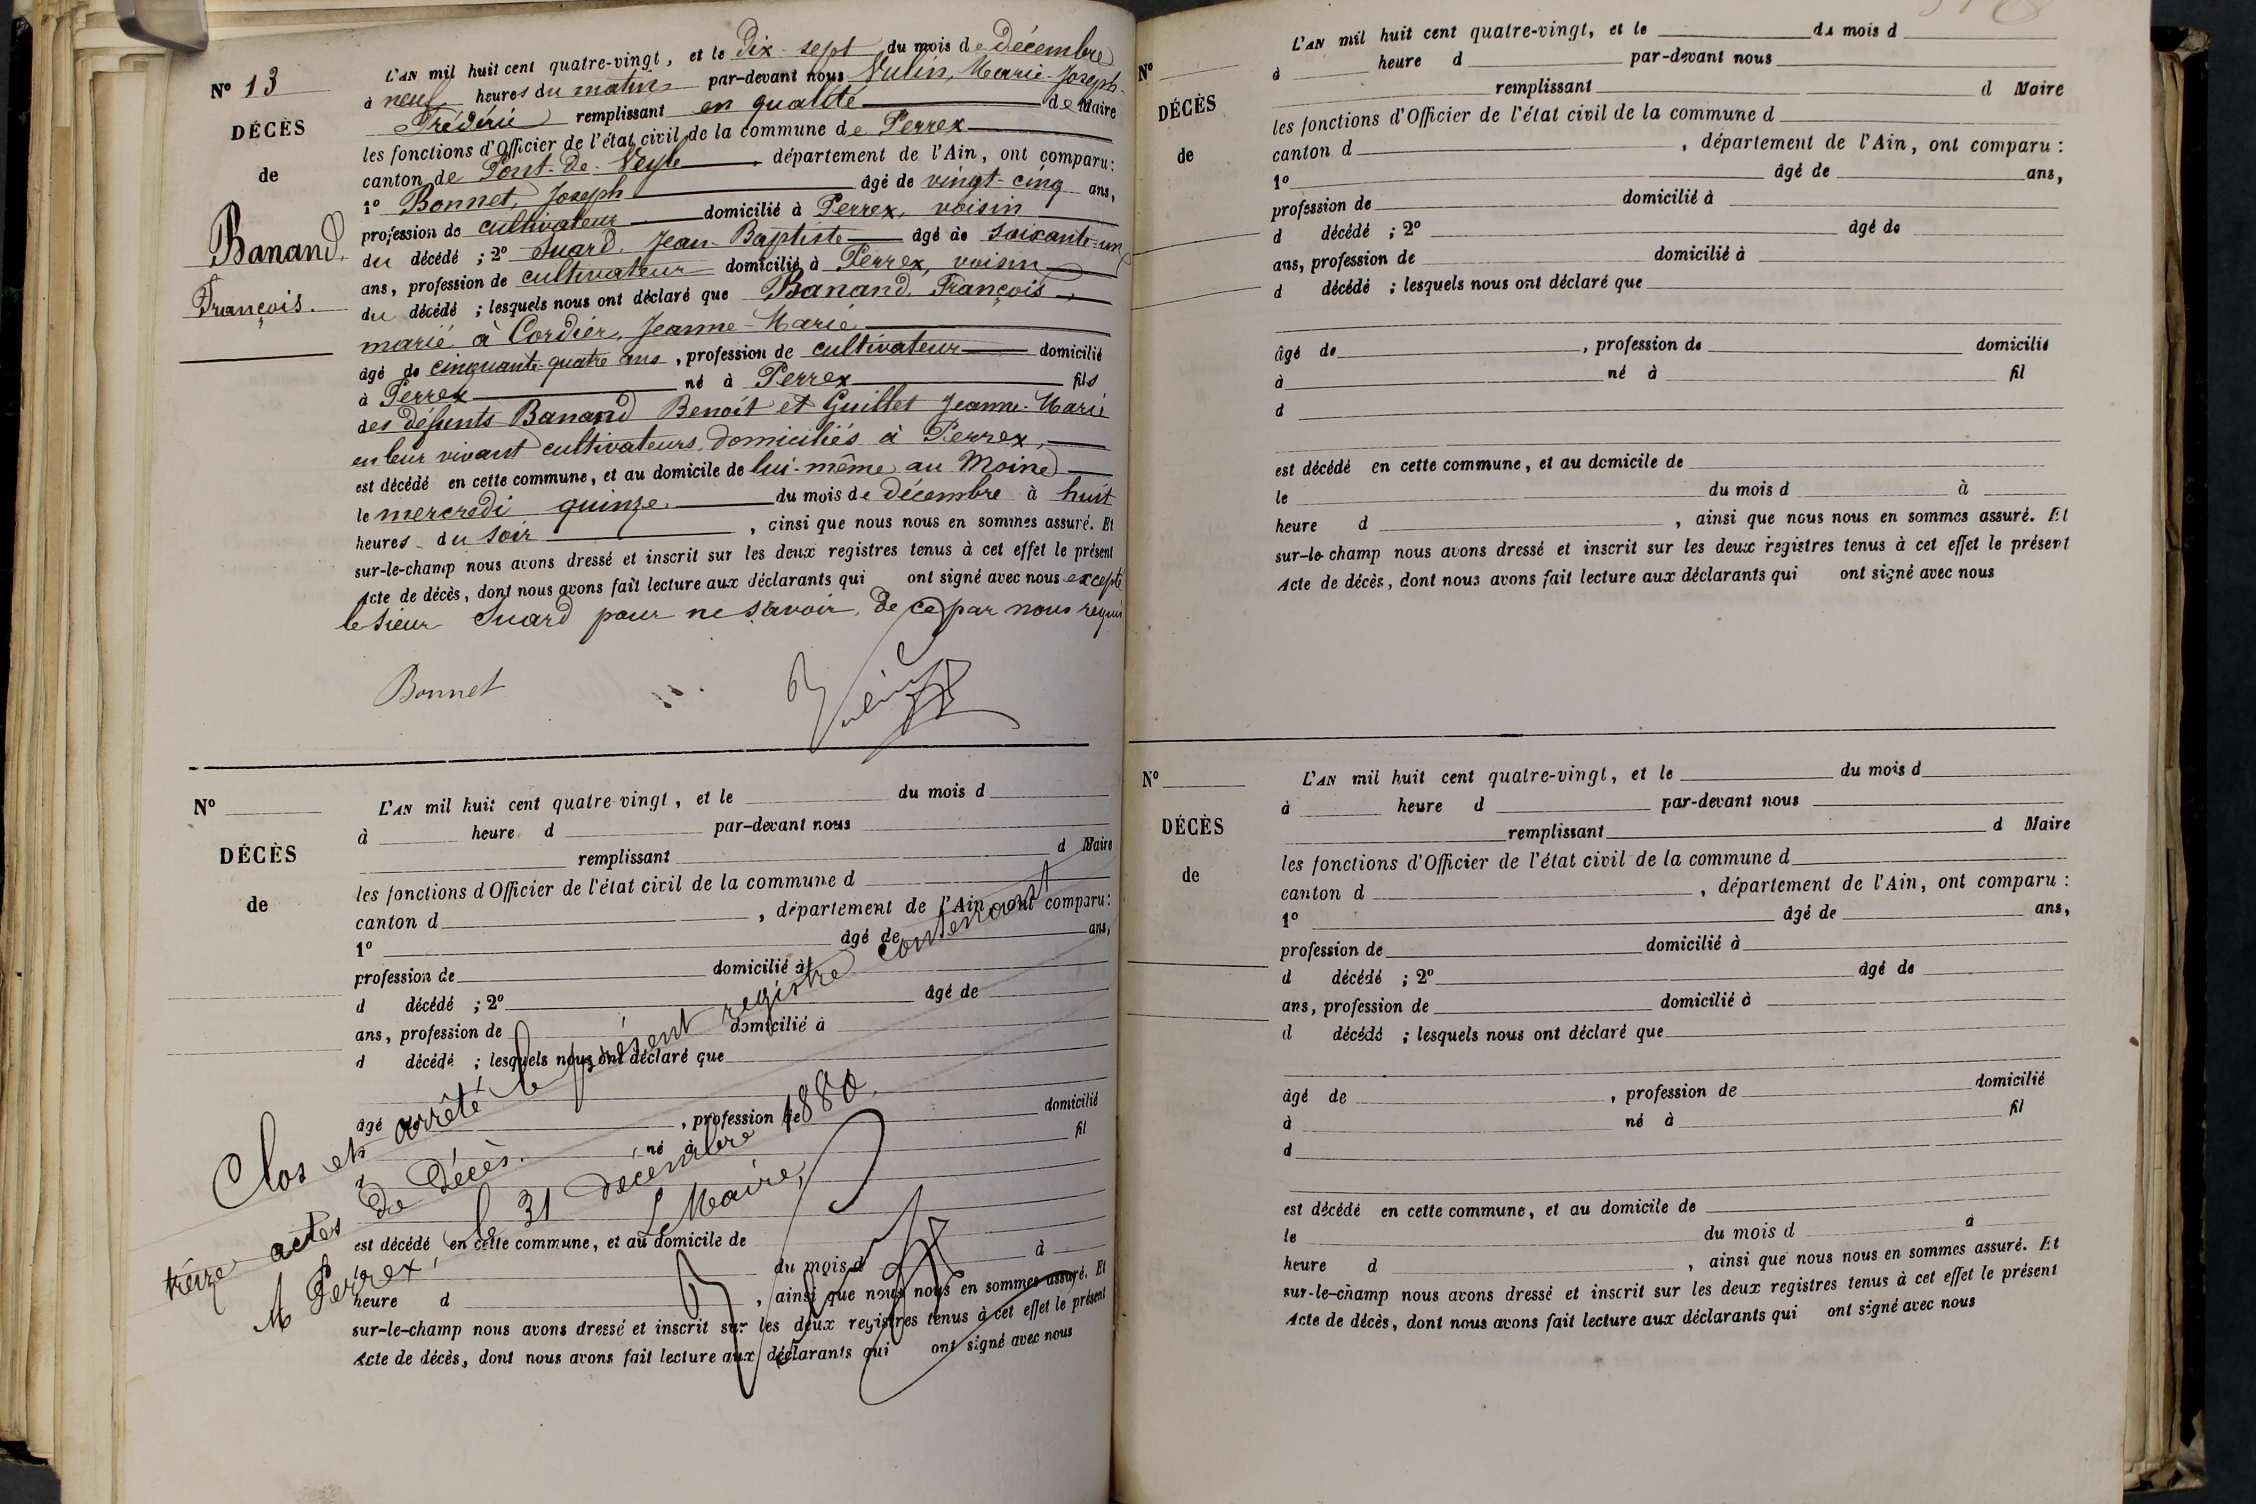 N° 13
DÉCÈS
de
Banand
François.
L'AN mil huit cent quatre-vingt, et le dix-sept du mois de décembre
à neuf heures du matin par-devant nous Vulin, Marie-Joseph-
Frédéric remplissant en qualité de Maire
les fonctions d'Officier de l'état civil de la commune de Perrex
canton de Pont-de-Veyle, département de l'Ain, ont comparu :
1° Bonnet, Joseph âgé de vingt-cinq ans,
profession de cultivateur domicilié à Perrex, voisin
du décédé ; 2° Suard, Jean-Baptiste âgé de soixante-un
ans, profession de cultivateur domicilié à Perrex, voisin
du décédé ; lesquels nous ont déclaré que Banand, François,
marié à Cordier, Jeanne-Marie
âgé de cinquante-quatre ans, profession de cultivateur domicilié
à Perrex né à Perrex fils
des défunts Banand Benoît et Guillet Jeanne-Marie
en leur vivant cultivateurs, domiciliés à Perrex,
est décédé en cette commune, et au domicile de lui-même au Moine
le mercredi quinze du mois de décembre à huit
heures du soir, ainsi que nous nous en sommes assuré. Et
sur-le-champ nous avons dressé et inscrit sur les deux registres tenus à cet effet le présent
Acte de décès, dont nous avons fait lecture aux déclarants qui ont signé avec nous excepté
le sieur Suard pour ne savoir, de ce par nous requis
Bonnet
Vulin
N°
DÉCÈS
de
L'AN mil huit cent quatre-vingt, et le du mois d
à heure d par-devant nous
remplissant d Maire
les fonctions d'Officier de l'état civil de la commune d
canton d , département de l'Ain, ont comparu :
1° âgé de ans,
profession de domicilié à
d décédé ; 2° âgé de
ans, profession de domicilié à
d décédé ; lesquels nous ont déclaré que
âgé de , profession de domicilié
à né à fil
d
est décédé en cette commune, et au domicile de
le du mois d à
heure d , ainsi que nous nous en sommes assuré. Et
sur-le-champ nous avons dressé et inscrit sur les deux registres tenus à cet effet le présent
Acte de décès, dont nous avons fait lecture aux déclarants qui ont signé avec nous
Clos et arrêté le présent registre contenant
treize actes de décès.
A Perrex, le 31 décembre 1880.
Le Maire,
Vulin
N°
DÉCÈS
de
L'AN mil huit cent quatre-vingt, et le du mois d
à heure d par-devant nous
remplissant d Maire
les fonctions d'Officier de l'état civil de la commune d
canton d , département de l'Ain, ont comparu :
1° âgé de ans,
profession de domicilié à
d décédé ; 2° âgé de
ans, profession de domicilié à
d décédé ; lesquels nous ont déclaré que
âgé de , profession de domicilié
à né à fil
d
est décédé en cette commune, et au domicile de
le du mois d à
heure d , ainsi que nous nous en sommes assuré. Et
sur-le-champ nous avons dressé et inscrit sur les deux registres tenus à cet effet le présent
Acte de décès, dont nous avons fait lecture aux déclarants qui ont signé avec nous
N°
DÉCÈS
de
L'AN mil huit cent quatre-vingt, et le du mois d
à heure d par-devant nous
remplissant d Maire
les fonctions d'Officier de l'état civil de la commune d
canton d , département de l'Ain, ont comparu :
1° âgé de ans,
profession de domicilié à
d décédé ; 2° âgé de
ans, profession de domicilié à
d décédé ; lesquels nous ont déclaré que
âgé de , profession de domicilié
à né à fil
d
est décédé en cette commune, et au domicile de
le du mois d à
heure d , ainsi que nous nous en sommes assuré. Et
sur-le-champ nous avons dressé et inscrit sur les deux registres tenus à cet effet le présent
Acte de décès, dont nous avons fait lecture aux déclarants qui ont signé avec nous